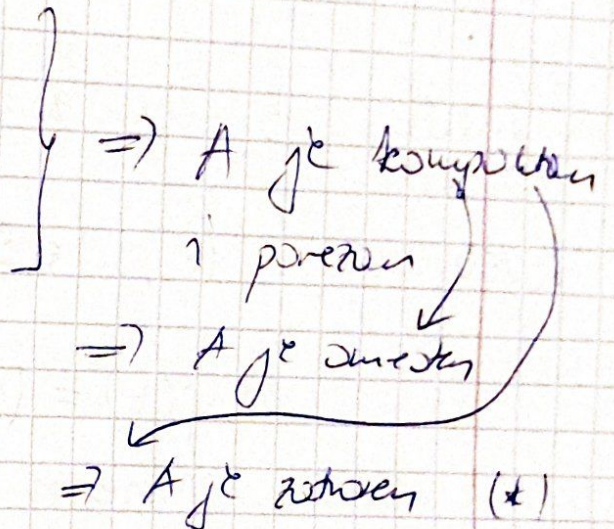 ⇒ A je kompaktan
i povezan
⇒ A je omeđen
⇒ A je zatvoren (*)